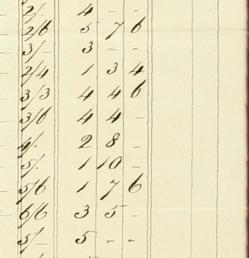 2/. 4 - -
2/6 5 7 6
3/- 3 - -
2/4 1 3 4
3/3 4 4 6
3/6 4 4 -
4/. 2 8 -
5/. 1 10 -
5/6 1 7 6
6/6 3 5 -
5/- 5 - -